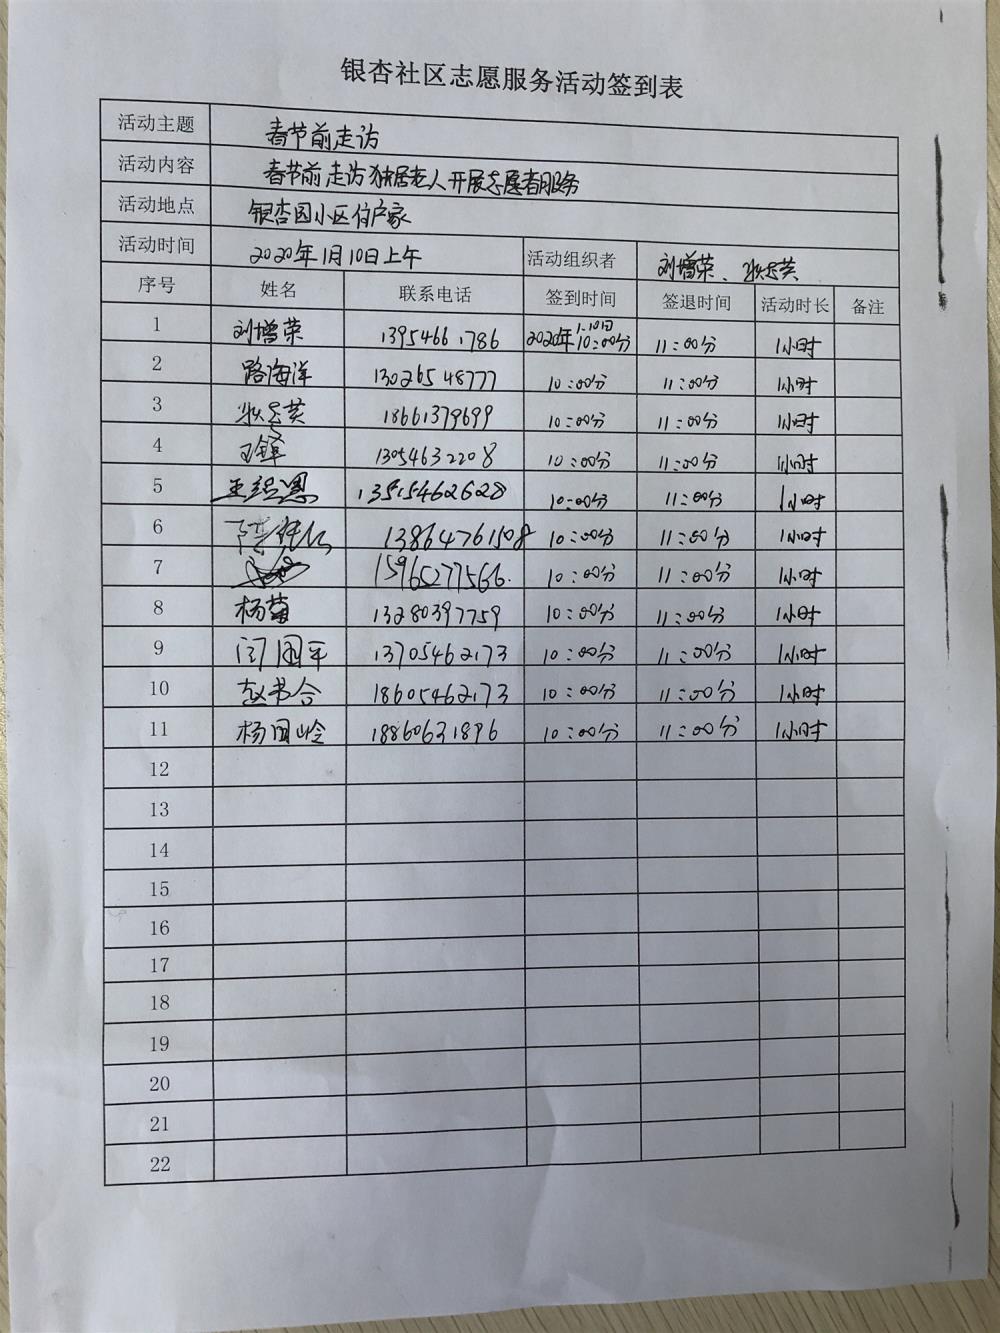 银杏社区志愿服务活动签到表
活动主题 春节前走访
活动内容 春节前走访独居老人开展志愿者服务
活动地点 银杏园小区住户家
活动时间 2020年1月10日上午 活动组织者 刘增荣、
序号 姓名 联系电话 签到时间 签退时间 活动时长 备注
1 刘增荣 13954661786 2020年1.10日10:00分 11:00分 1小时
2 路海洋 13026548777 10:00分 11:00分 1小时
3 18661379699 10:00分 11:00分 1小时
4 13054632208 10:00分 11:00分 1小时
5 13515462628 10:00分 11:00分 1小时
6 13864761508 10:00分 11:00分 1小时
7 15965277566. 10:00分 11:00分 1小时
8 杨菊 13280397759 10:00分 11:00分 1小时
9 闫国平 13705462173 10:00分 11:00分 1小时
10 赵书合 18605462173 10:00分 11:00分 1小时
11 杨国岭 18860631896 10:00分 11:00分 1小时
12
13
14
15
16
17
18
19
20
21
22